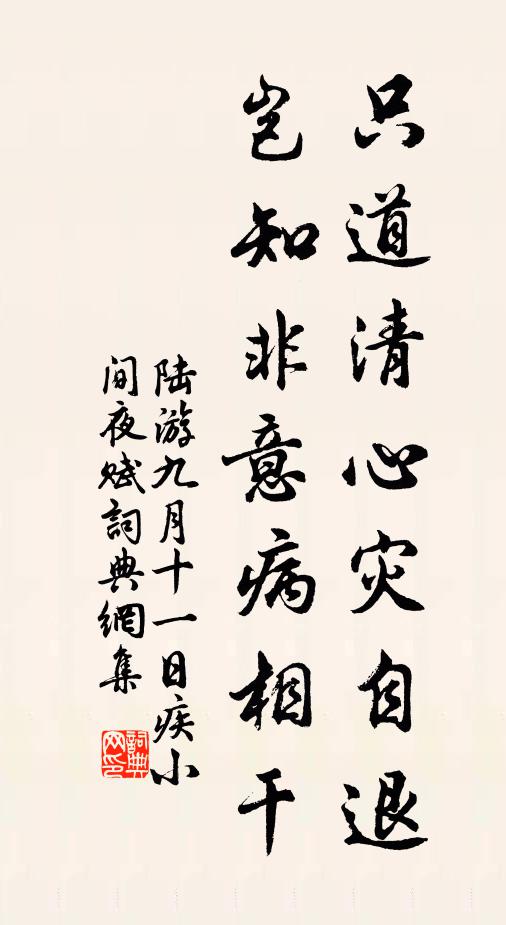 只道清心灾自退
岂知非意病相干
陆游九月十一日疾小
间夜赋詞典網集
詞典
网印